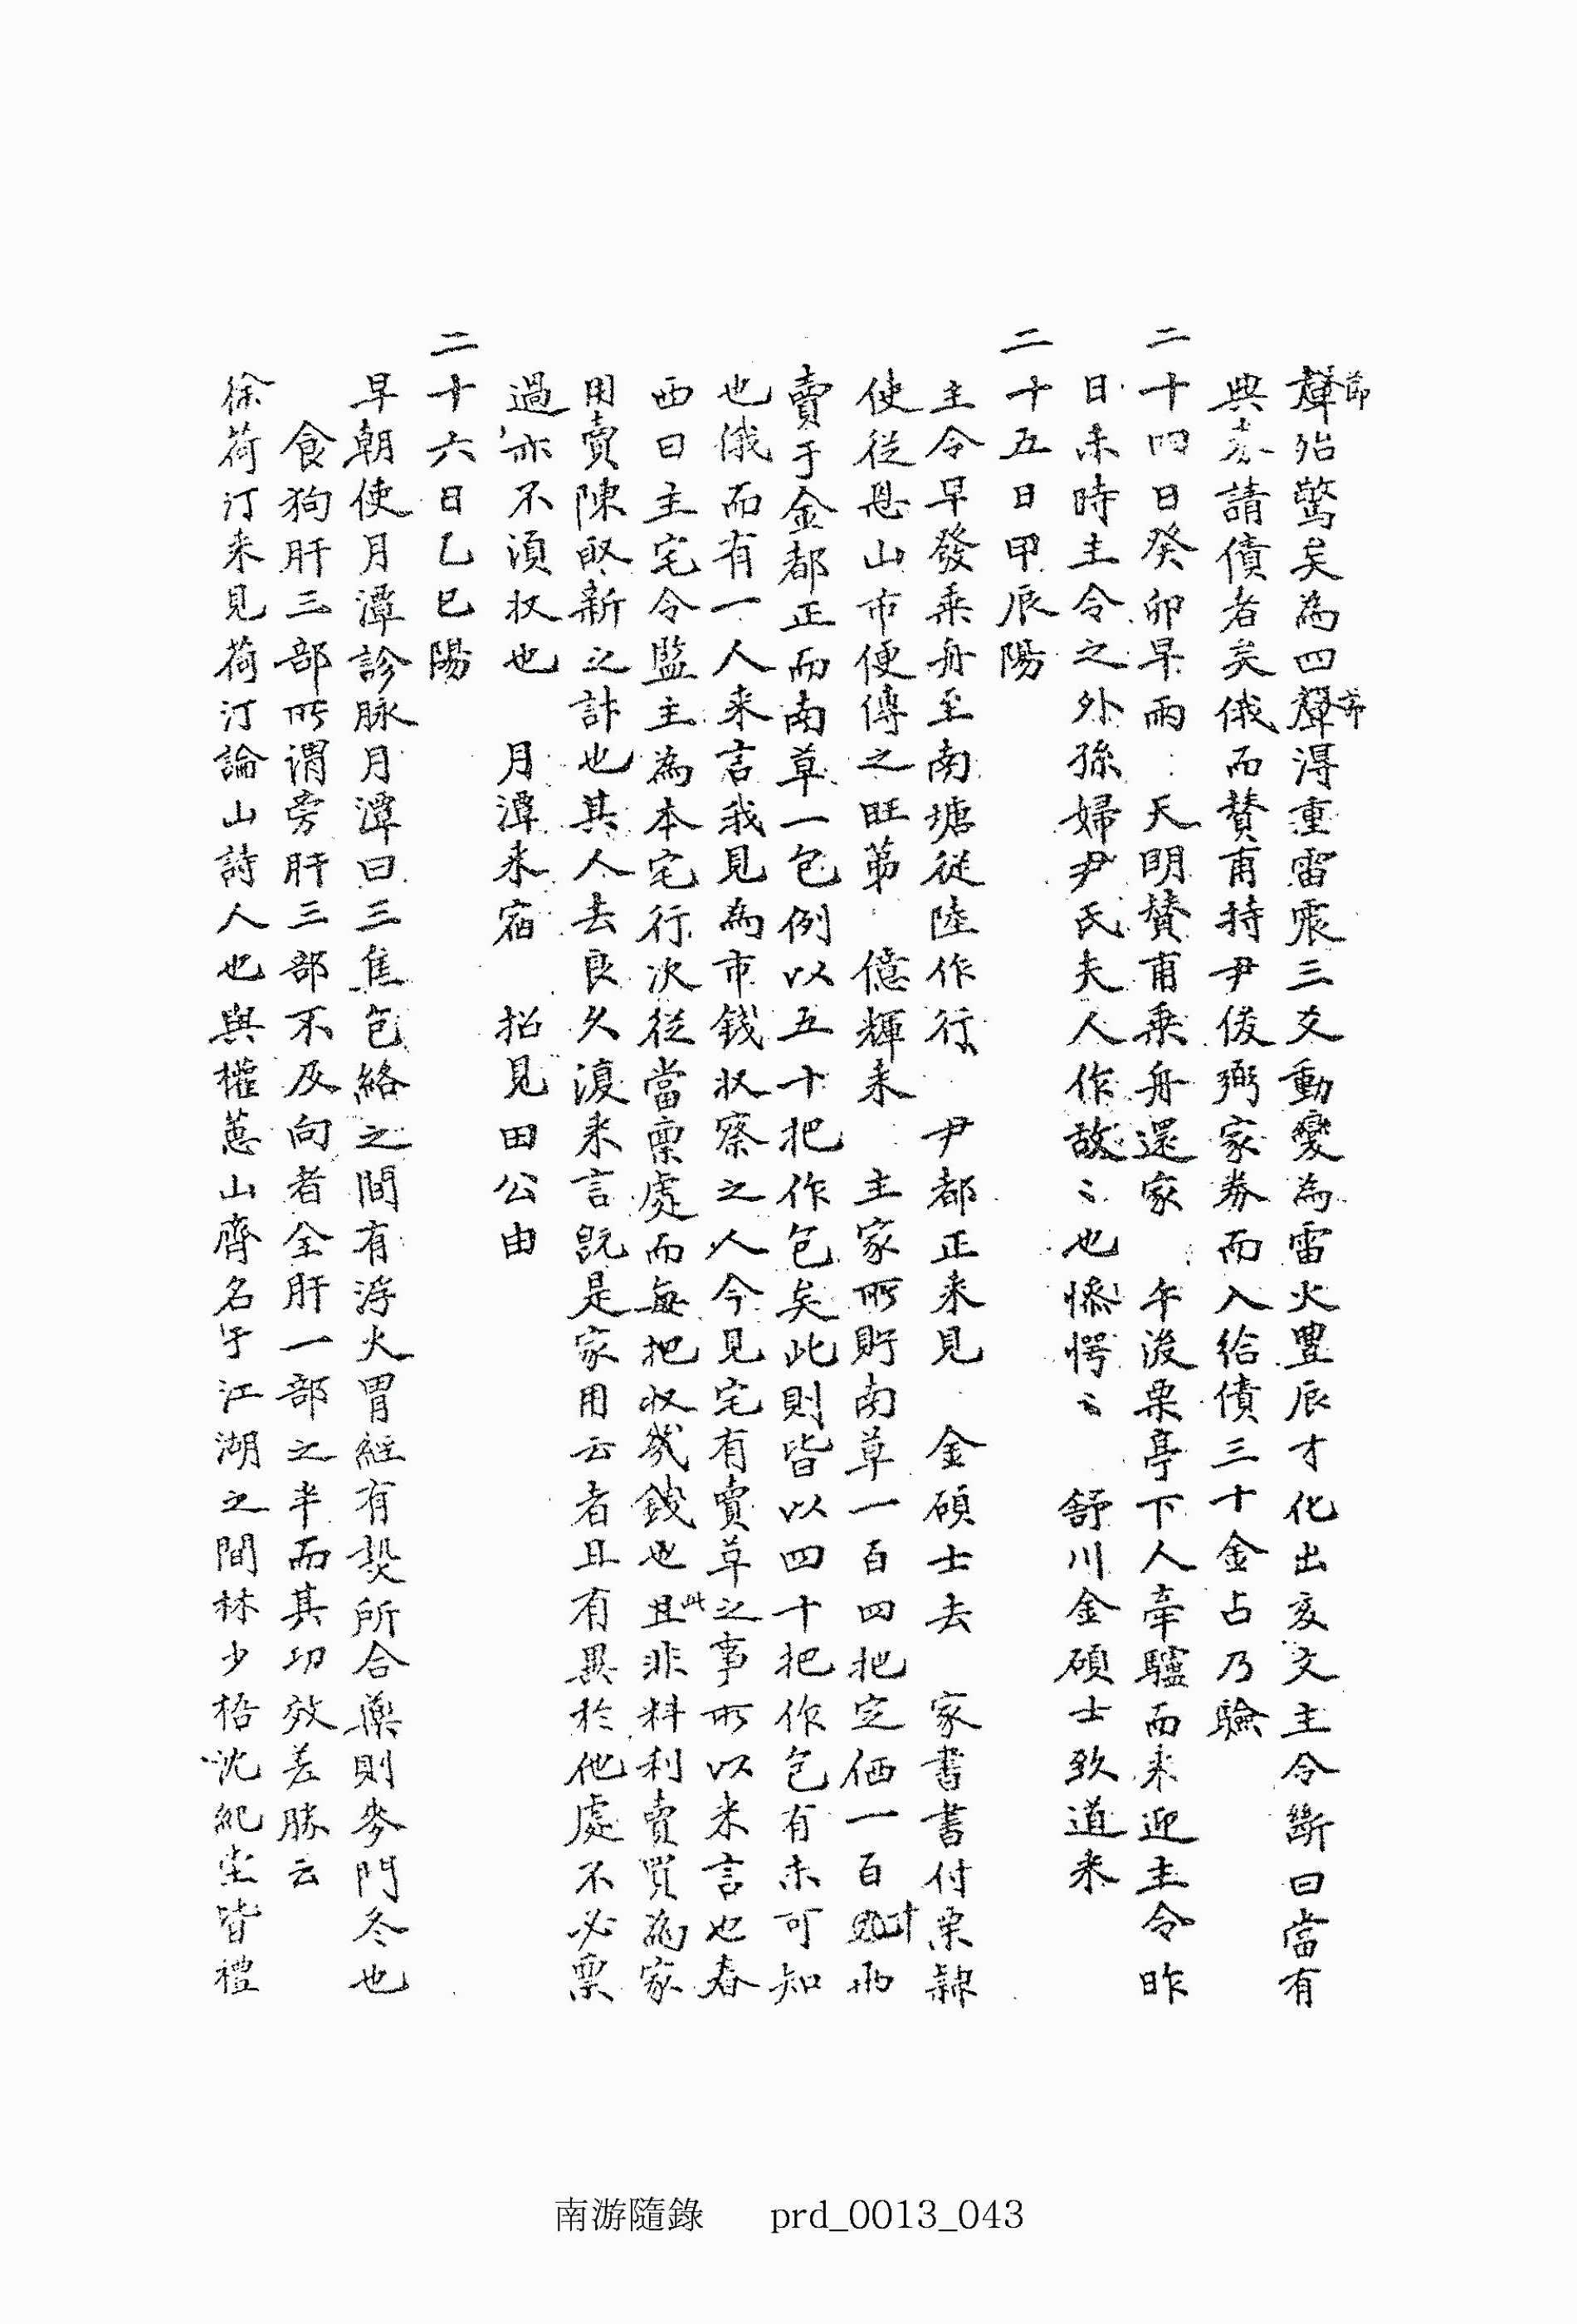 節
聲殆驚矣為四聲得重雷震三爻動變為雷火豊辰才化出亥文主令斷曰當有
典家請債者矣俄而賛甫持尹俊弼家券而入給債三十金占乃驗
二十四日癸卯早雨 天明賛甫乗舟還家 午後栗亭下人牽驢而来迎主令昨
日未時主令之外孫婦尹氏夫人作故〻也慘愕〻 舒川金碩士致道来
二十五日甲辰陽
主令早發乗舟至南塘從陸作行 尹都正来見 金碩士去 家書書付栗隷
使從恩山市便傳之旺第 億輝来 主家所貯南草一百四把定価一百 十両
賣于金都正而南草一包例以五十把作包矣此則皆以四十把作包有未可知
也俄而有一人来言我見為市錢収察之人今見宅有賣草之事所以来言也春
西曰主宅令監主為本宅行次從當稟處而每把収幾錢也且此非料利賣買為家
用賣陳取新之計也其人去良久復来言既是家用云者且有異於他處不必稟
過亦不須収也 月潭来宿 招見田公由
二十六日乙巳陽
早朝使月潭診脉月潭曰三焦包絡之間有浮火胃経有熱所合藥則麥門冬也
食狗肝三部所謂旁肝三部不及向者全肝一部之半而其功效差勝云
徐荷汀来見荷汀論山詩人也與權蔥山齊名于江湖之間林少梧沈紀堂皆禮
南游隨錄 prd_0013_043